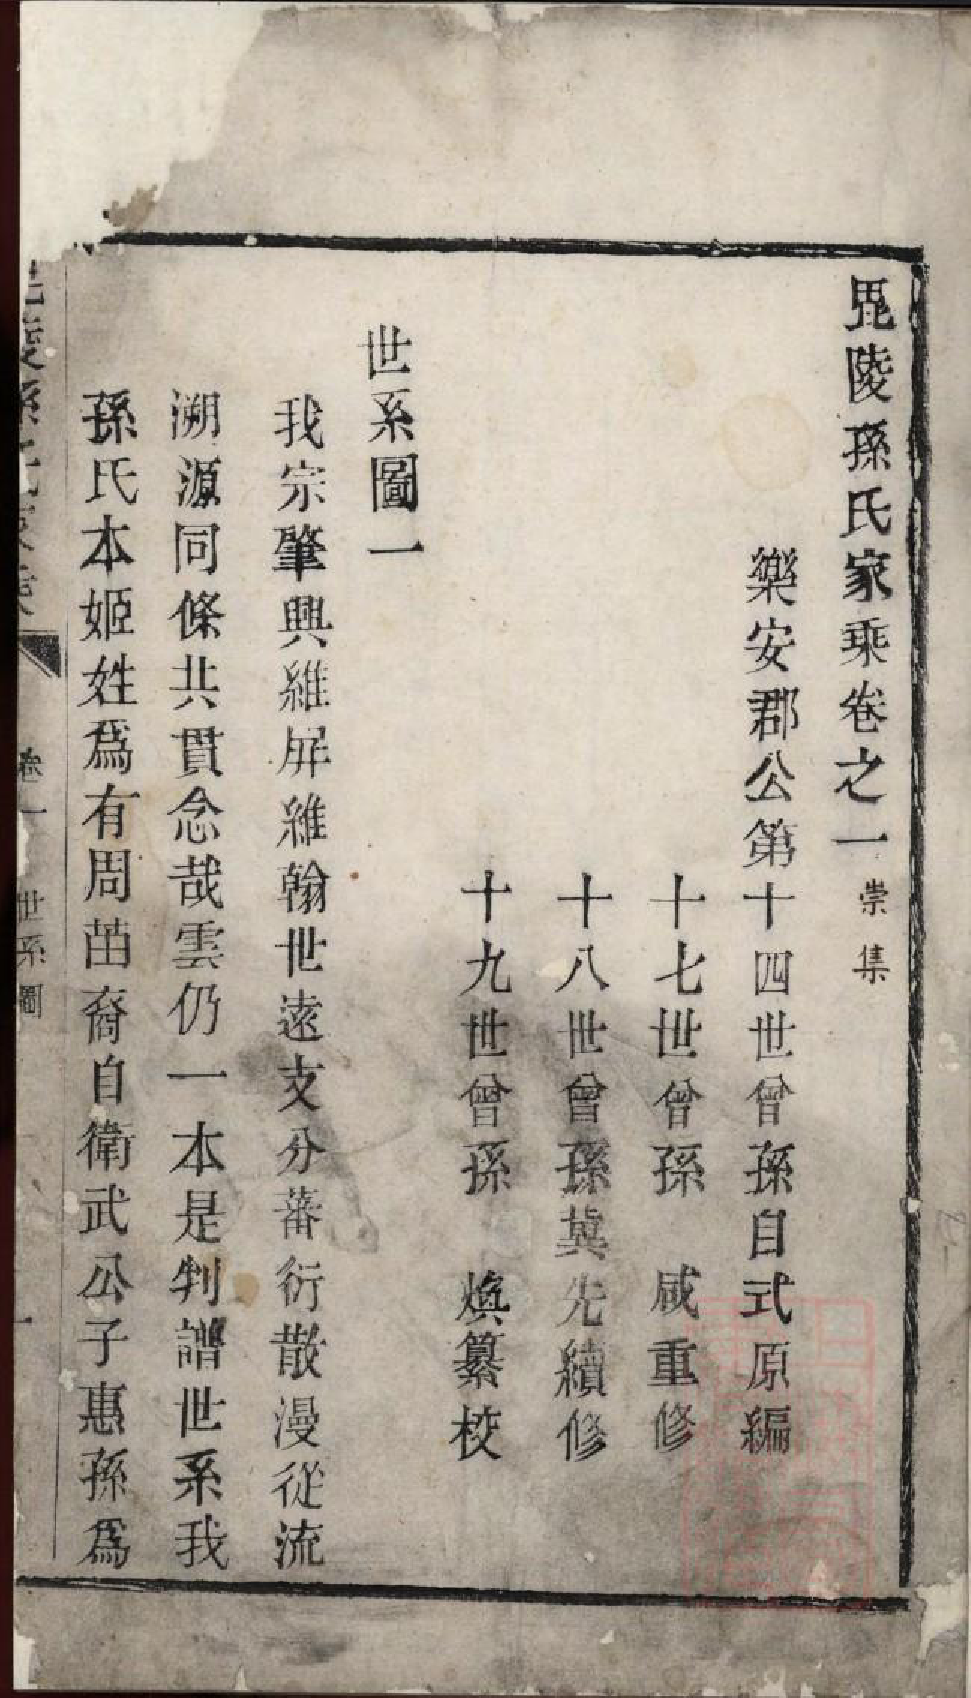 毘陵孫氏家乘卷之一 崇集
樂安郡公第十四世曾孫自式原編
十七世曾孫 咸重修
十八世曾孫蓂先續修
十九世曾孫 煥纂校
世系圖一
我宗肇興維屏維翰世遠支分蕃衍散漫從流
溯源同條共貫念哉雲仍一本是判譜世系我
孫氏本姬姓爲有周苗裔自衛武公子惠孫爲
陵孫氏家乘 卷一 世系圖 一